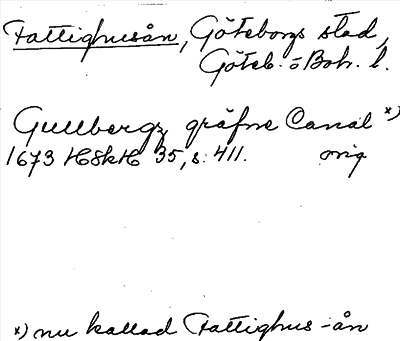 Fattighusån, Göteborgs stad,
Göteb. o Boh. l.
Gullbergz gräfne Canal x)
1673 HSkH 35, s. 411. orig
x) nu kallad Fattighus-ån